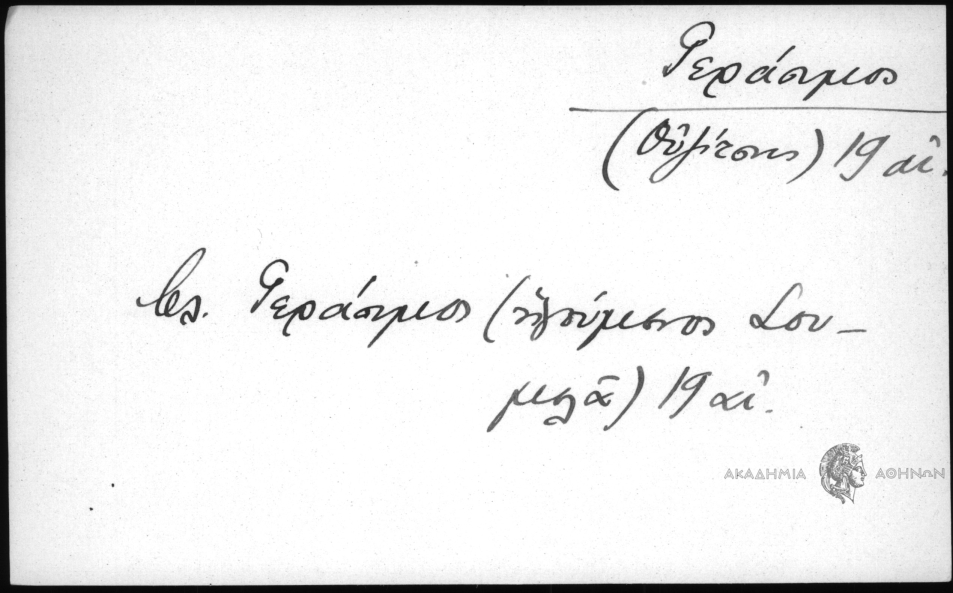 Γεράσιμος
( ) 19 αἰ.
βλ. Γεράσιμος (ἡγούμενος Σου-
μελᾶ) 19 αἰ.
ΑΚΑΔΗΜΙΑ ΑΘΗΝΩΝ